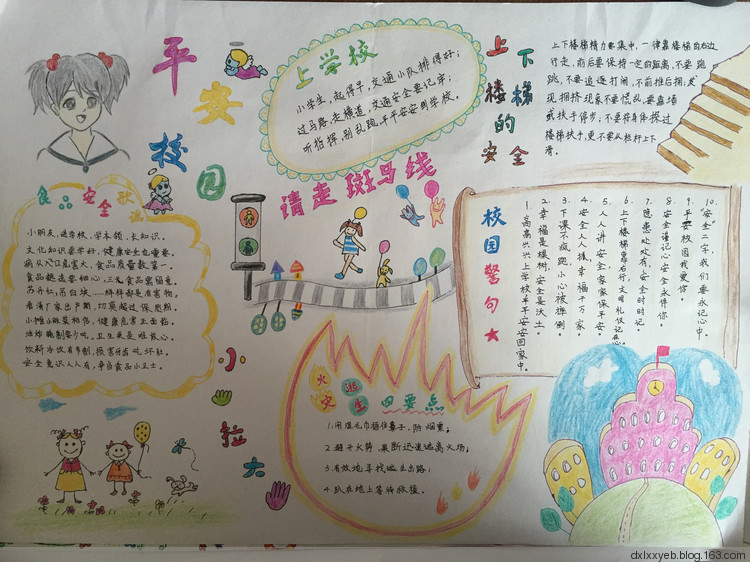 平安校园
上学校
小学生,起得早,交通小队排得好;
过马路,走横道,交通安全要记牢;
听指挥,别乱跑,平平安安到学校。
上下楼梯的安全
上下楼梯精力要集中,一律靠楼梯自右边
行走,前后要保持一定的距离,不要跑
跳,不要追逐打闹,不前推后拥;发
现拥挤现象不要慌乱,要靠墙
或扶手停步;不要将身体探过
楼梯扶手,更不要从栏杆上下
滑。
请走斑马线
食品安全歌谣
小朋友,进学校,学本领,长知识。
文化知识要学好,健康安全也重要。
病从入口危害大,食品质量数第一。
食品挑选要细心,三无食品需留意。
看清厂家出产期,切莫超过保质期。
安全意识人人有,争当食品小卫士。
小手拉大手
火灾逃生四要点
1.用湿毛巾捂住鼻子,防烟熏;
2.避开火势,果断迅速逃离火场;
3.有效地寻找逃生出路;
4.趴在地上等待救援。
校园警句★
1.高高兴兴上学校,平平安安回家中。
2.幸福是棵树,安全是沃土。
3.下课不疯跑,小心被摔倒。
4.安全人人抓,幸福千万家。
5.人人讲安全,家家保平安。
6.上下楼梯靠右行,文明礼仪记在心。
7.隐患处处有,安全时时记。
8.安全谨记心,安全永伴你。
9.平安校园我爱你。
10."安全"二字,我们要永记心中。
dxlxxyeb.blog.163.com